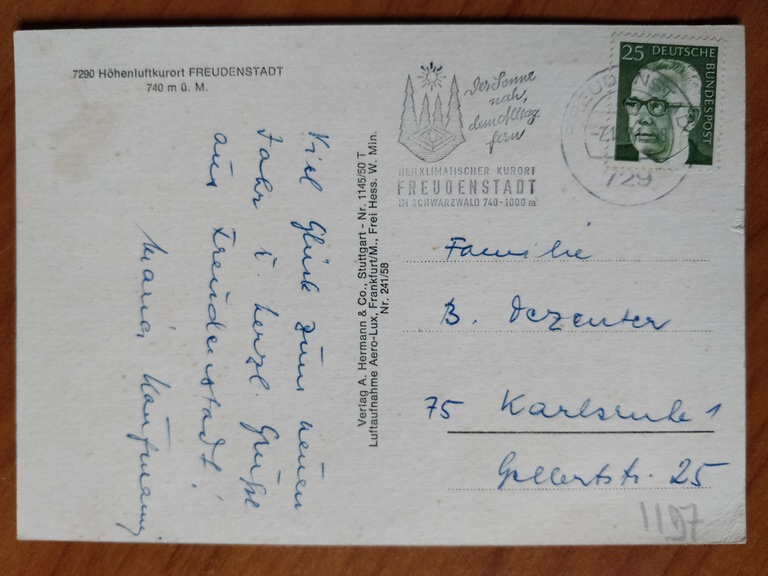 7290 Höhenluftkurort FREUDENSTADT
740 m ü. M.
Viel Glück zum neuen
Jahr u. herzl. Grüße
aus Freudenstadt!
Maria Kaufmann
Verlag A. Hermann & Co., Stuttgart - Nr. 1145/50 T
Luftaufnahme Aero-Lux, Frankfurt/M., Frei Hess. W. Min.
Nr. 241/58
Der Sonne
nah,
dem Alltag
fern
HEILKLIMATISCHER KURORT
FREUDENSTADT
IM SCHWARZWALD 740-1000 m
FREUDENSTADT
729
25 DEUTSCHE
BUNDESPOST
Familie
B. Dezenter
75 Karlsruhe 1
Gellertstr. 25
1197